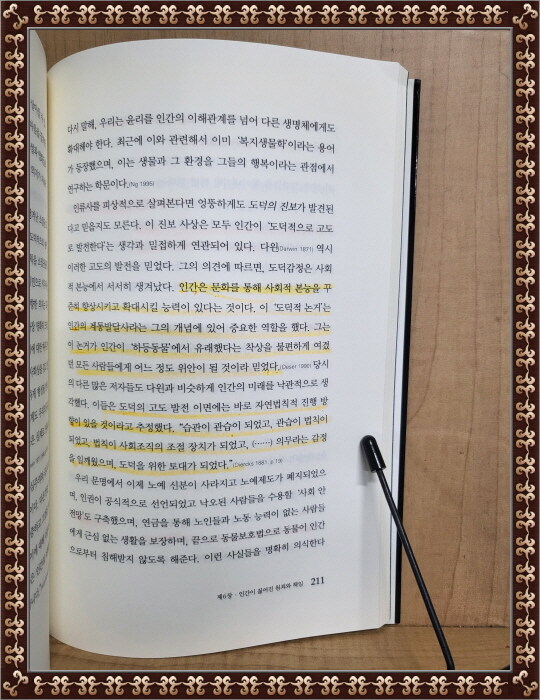 다시 말해, 우리는 윤리를 인간의 이해관계를 넘어 다른 생명체에게도
확대해야 한다. 최근에 이와 관련해서 이미 '복지생물학'이라는 용어
가 등장했으며, 이는 생물과 그 환경을 그들의 행복이라는 관점에서
연구하는 학문이다.(Ng 1995)
인류사를 피상적으로 살펴본다면 엉뚱하게도 도덕의 진보가 발견된
다고 믿을지도 모른다. 이 진보 사상은 모두 인간이 '도덕적으로 고도
로 발전한다'는 생각과 밀접하게 연관되어 있다. 다윈(Darwin 1871) 역시
이러한 고도의 발전을 믿었다. 그의 의견에 따르면, 도덕감정은 사회
적 본능에서 서서히 생겨났다. 인간은 문화를 통해 사회적 본능을 꾸
준히 향상시키고 확대시킬 능력이 있다는 것이다. 이 '도덕적 논거'는
인간의 계통발달사라는 그의 개념에 있어 중요한 역할을 했다. 그는
이 논거가 인간이 '하등동물'에서 유래했다는 착상을 불편하게 여겼
던 모든 사람들에게 어느 정도 위안이 될 것이라 믿었다. 당시
의 다른 많은 저자들도 다윈과 비슷하게 인간의 미래를 낙관적으로 생
각했다. 이들은 도덕의 고도 발전 이면에는 바로 자연법칙적 진행 방
향이 있을 것이라고 추정했다. "습관이 관습이 되었고, 관습이 법칙이
되었고, 법칙이 사회조직의 조절 장치가 되었고, (……) 의무라는 감정
을 일깨웠으며, 도덕을 위한 토대가 되었다."
우리 문명에서 이제 노예 신분이 사라지고 노예제도가 폐지되었으
며, 인권이 공식적으로 선언되었고 낙오된 사람들을 수용할 '사회 안
전망'도 구축했으며, 연금을 통해 노인들과 노동 능력이 없는 사람들
에게 근심 없는 생활을 보장하며, 끝으로 동물보호법으로 동물이 인간
으로부터 침해받지 않도록 해준다. 이런 사실들을 명확히 의식한다
제6장 · 인간이 짊어진 원죄와 책임 211